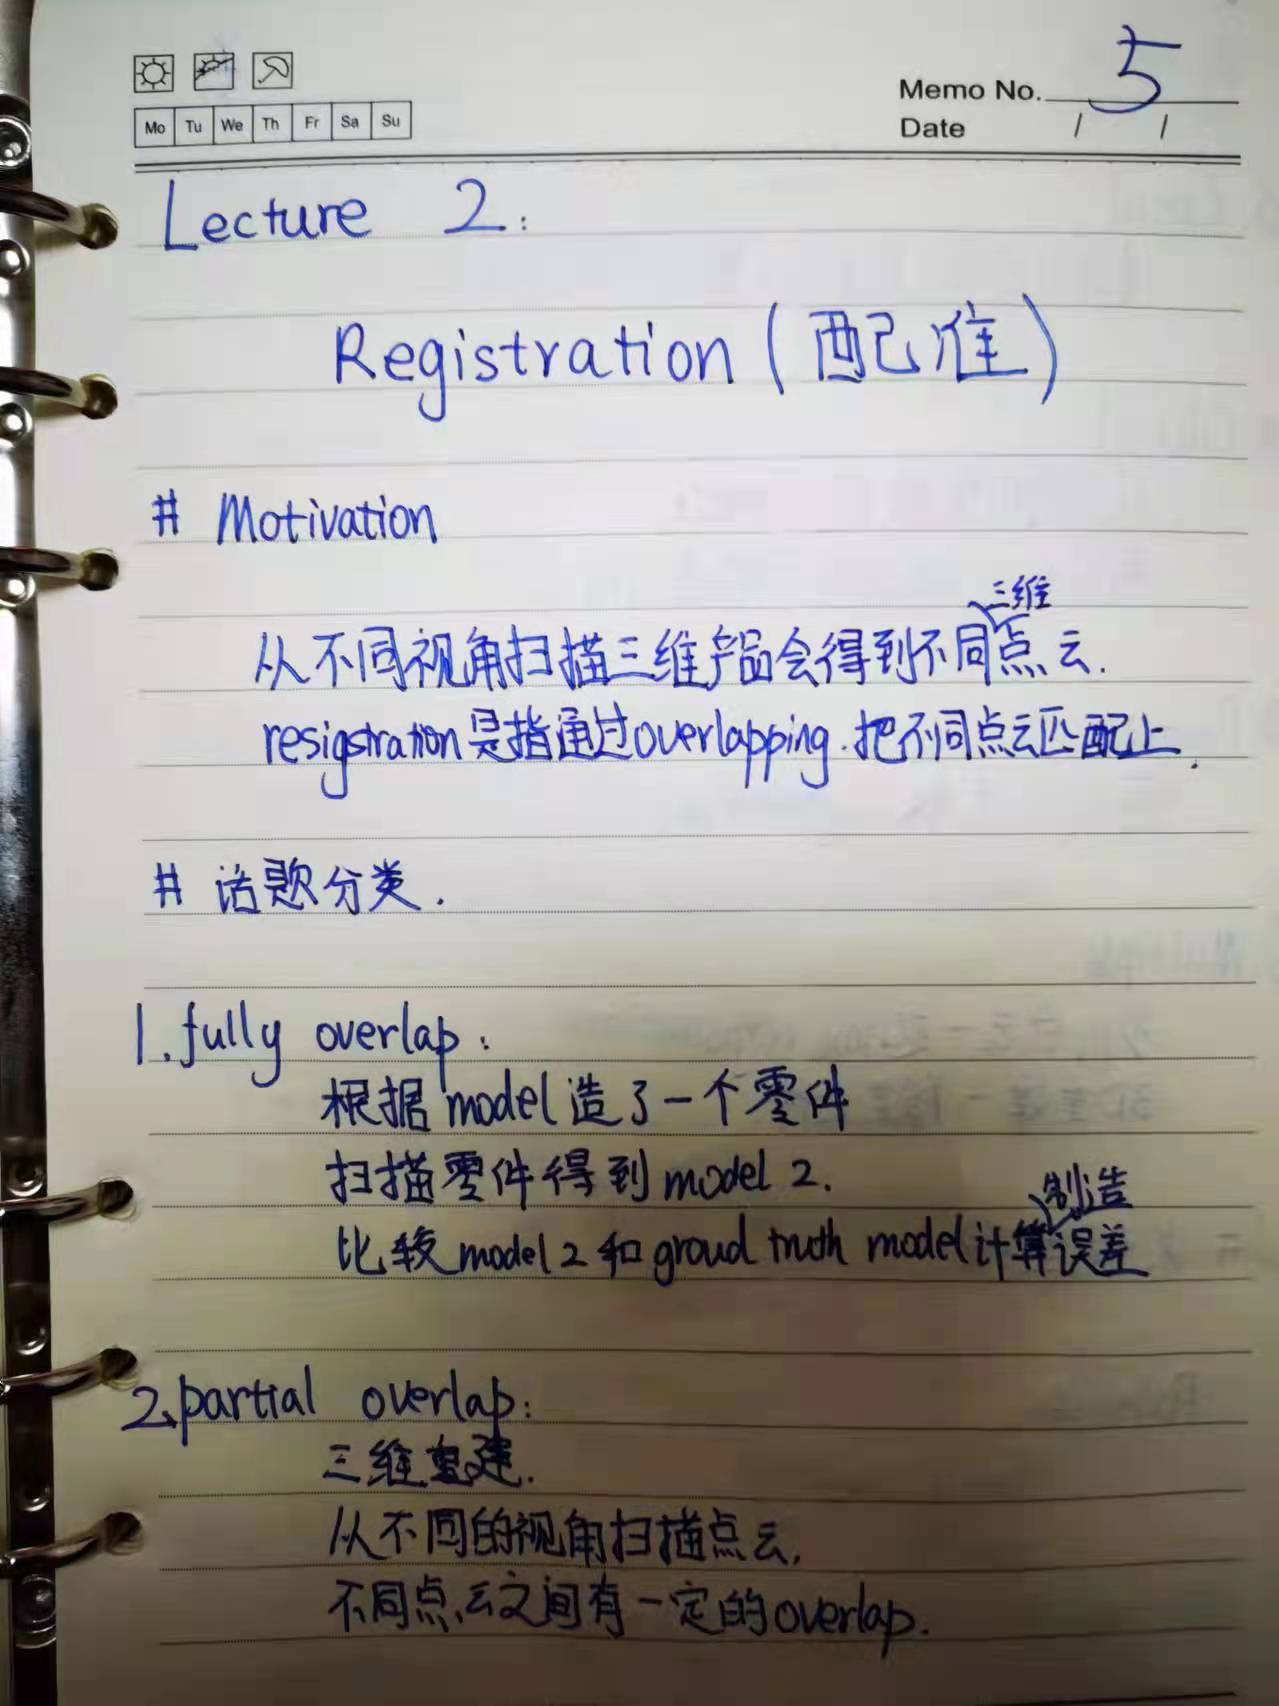 Memo No. 5
Mo Tu We Th Fr Sa Su
Date / /
Lecture 2:
Registration (配准)
# Motivation
三维
从不同视角扫描三维产品会得到不同点云.
resigstration是指通过overlapping.把不同点云匹配上.
# 话题分类.
1.fully overlap:
根据model造了一个零件
扫描零件得到model 2.
制造
比较model 2和groud truth model计算误差
2.partial overlap:
三维重建.
从不同的视角扫描点云,
不同点云之间有一定的overlap.